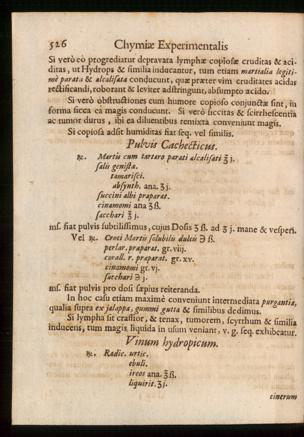 526 Chymiæ Experimentalis
Si verò eò progrediatur depravata lymphæ copiosæ cruditas & aci-
ditas, ut Hydrops & similia inducantur, tum etiam martialia legiti-
mè parata & alcalisata conducunt, quæ præter vim cruditates acidas
rectificandi, roborant & leviter adstringunt, absumpto acido.
Si verò obstructiones cum humore copioso conjunctæ sint, in
forma sicca ea magis conducunt. Si verò siccitas & scirrhescentia
ac tumor durus, ibi ea diluentibus remixta conveniunt magis.
Si copiosa adsit humiditas fiat seq. vel similis.
Pulvis Cachecticus.
℞. Martis cum tartaro parati alcalisati ʒj.
salis genistæ.
tamarisci.
absynth. ana. ʒj.
succini albi præparat.
cinamomi ana ʒß.
sacchari ʒj.
mſ. fiat pulvis subtilissimus, cujus Dosis ʒß. ad ʒj. mane & vesperi.
Vel ℞. Croci Martis solubilis dulcis ℈ß.
perlar. præparat. gr. viij.
corall. r. præparat. gr. xv.
cinamomi gr. vj.
sacchari ℈j.
mſ. fiat pulvis pro dosi sæpius reiteranda.
In hoc casu etiam maximè conveniunt intermediata purgantia,
qualia supra ex jalappa, gummi gutta & similibus dedimus.
Si lympha sit crassior, & tenax, tumorem, scyrrhum & similia
inducens, tum magis liquida in usum veniant, v. g. seq. exhibeatur.
Vinum hydropicum.
℞. Radic. urtic.
ebuli.
ireos ana ʒß.
liquirit. ʒj.
cinerum